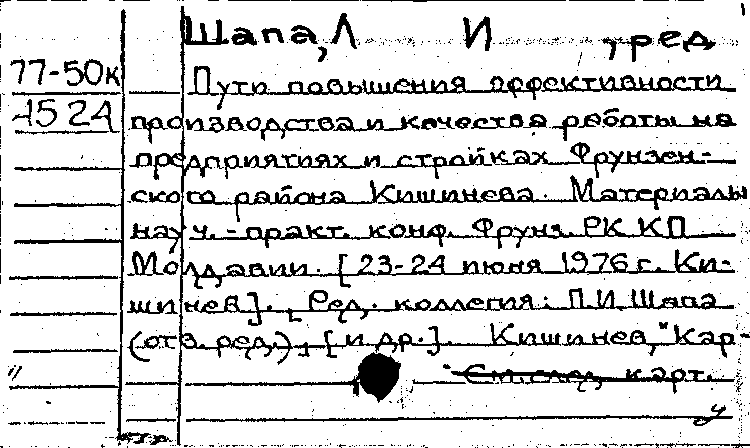 Шапа, Л И , ред
77-50к Пути повышения эффективности
1524 производства и качества работы на
предприятиях и стройках Фрунзен-
ского района Кишинева. Материалы
науч.-практ. конф. Фрунз. РК КП
Молдавии. [23-24 июня 1976 г. Ки-
шинев]. [Ред. коллегия: Л.И. Шапа
(отв. ред.), [и др.]. Кишинев, "Кар-
См. след. карт.